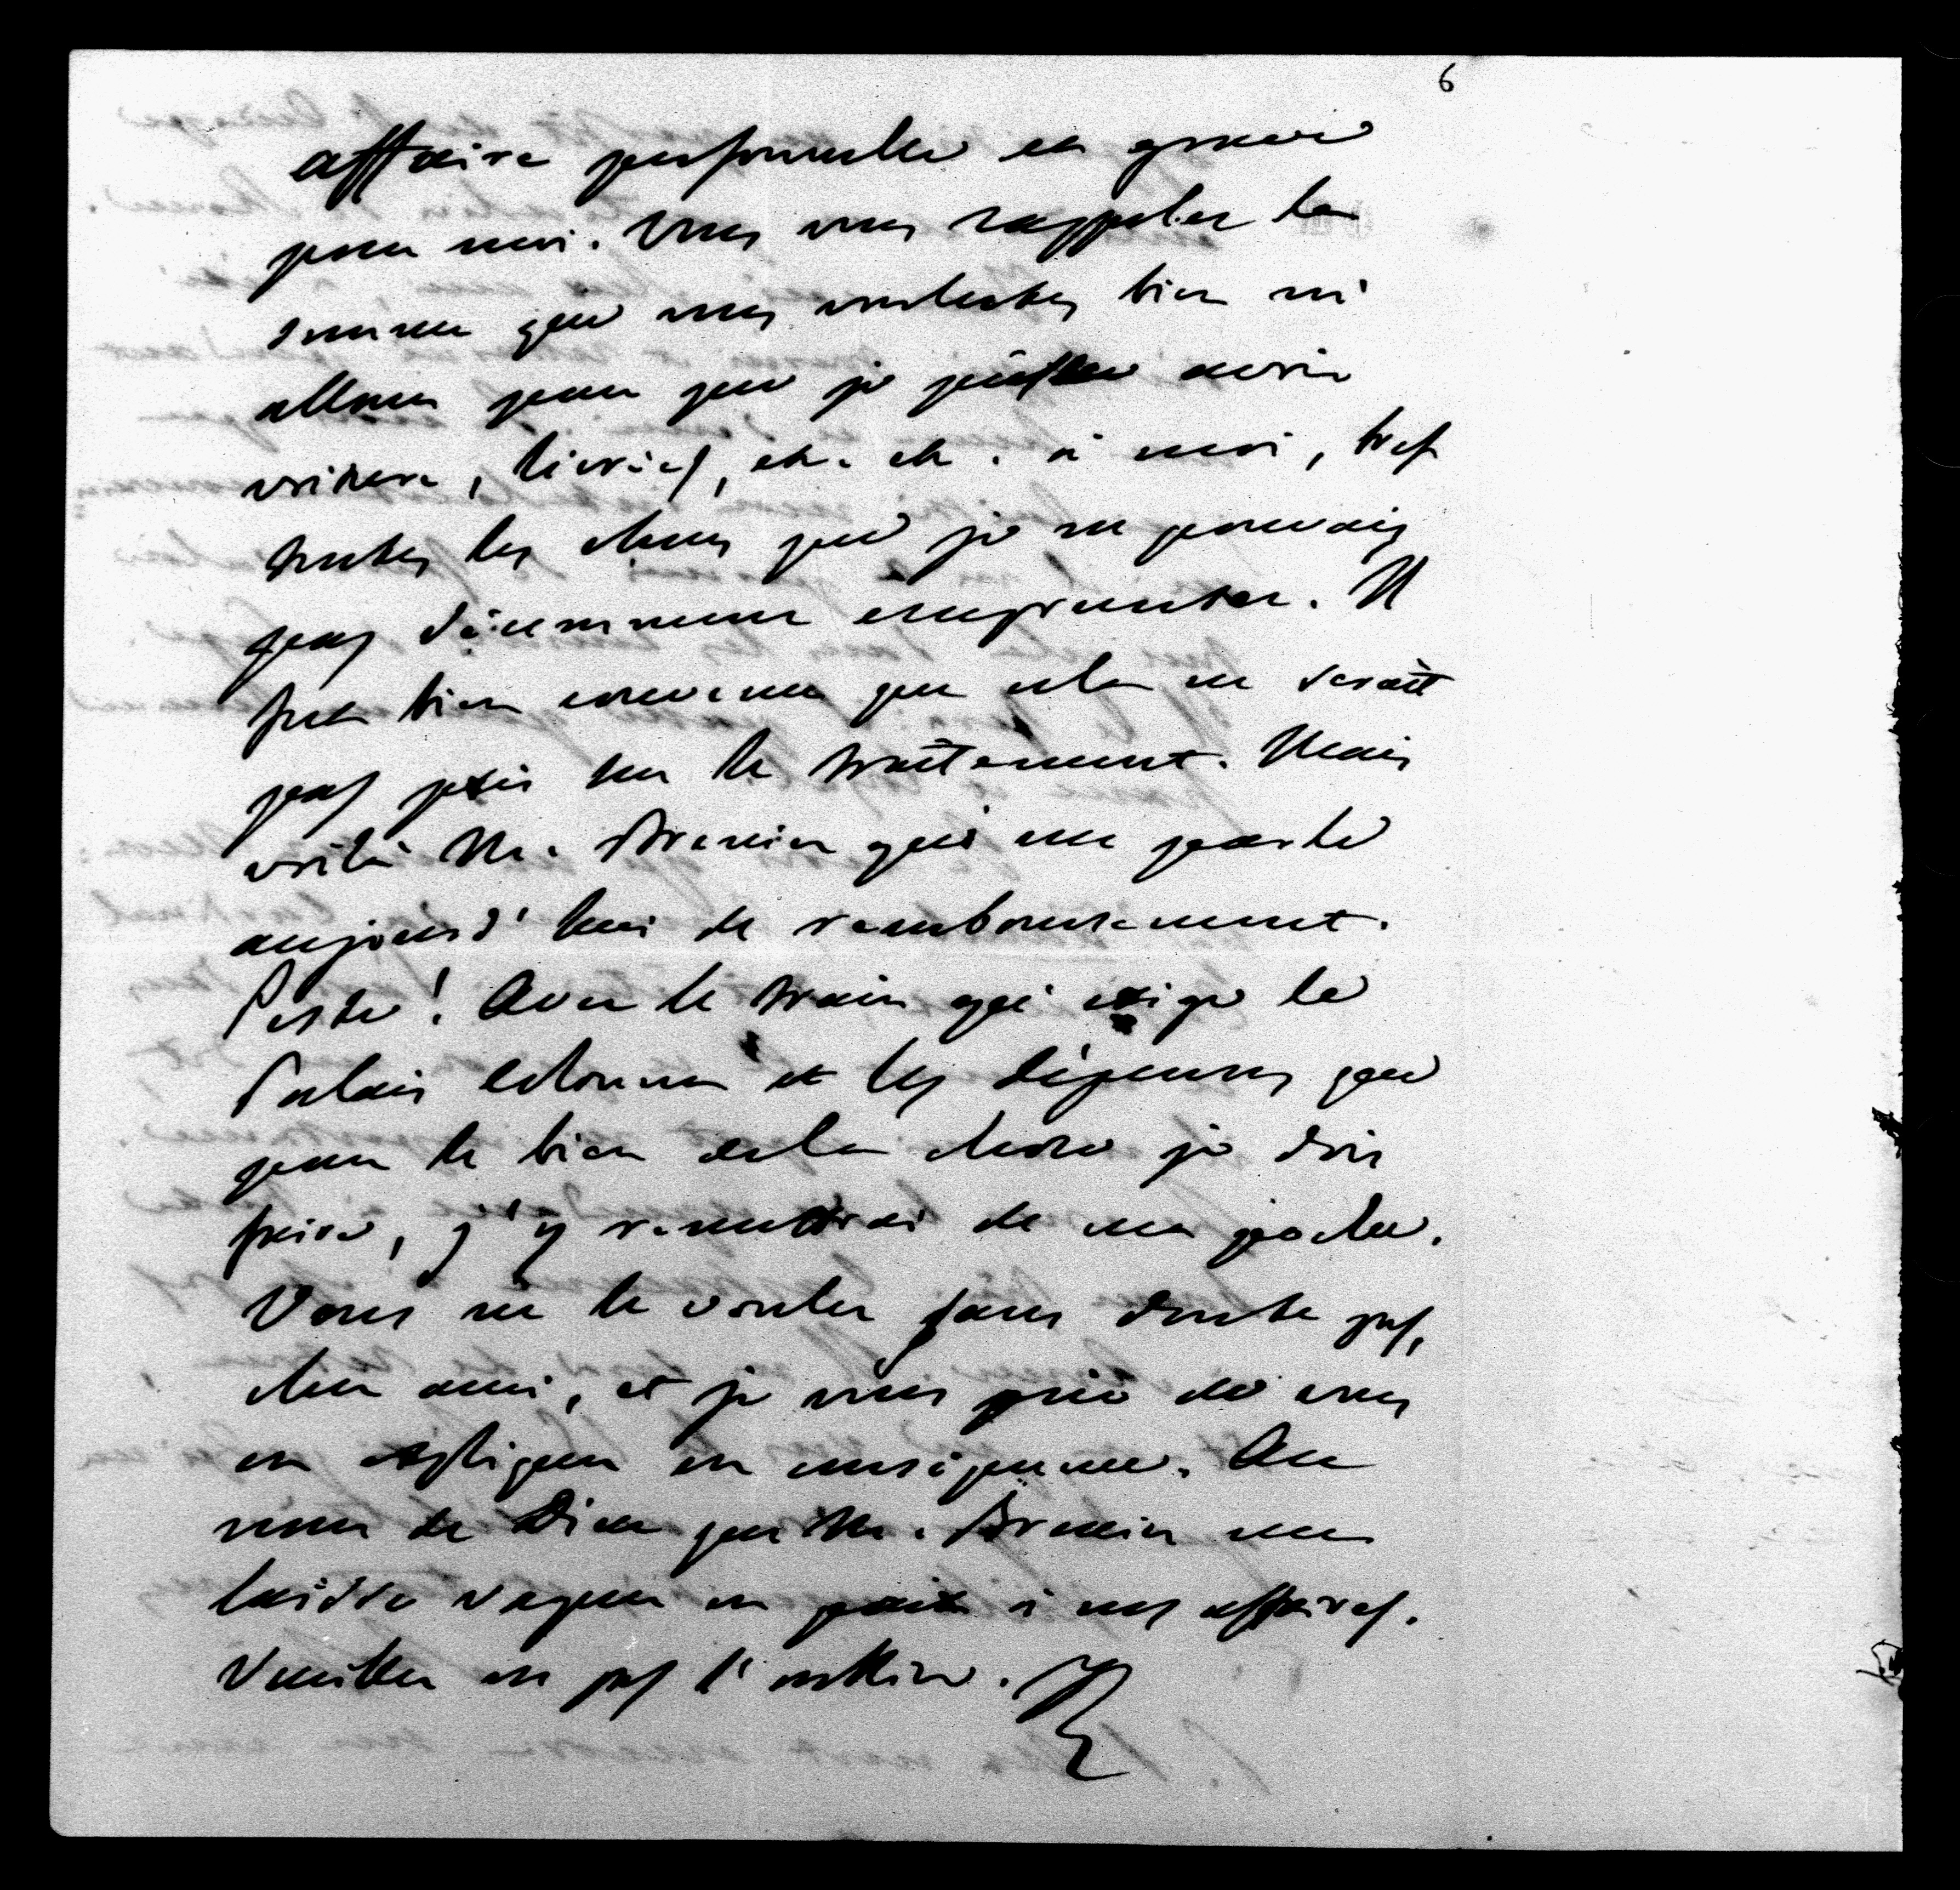 6
affaire personnelle et grave
pour moi. Vous vous rappelez la
somme que vous voulutes bien m'
allouer pour que je puisse avoir
voiture, livrées, etc. etc. à moi, bref
toutes les choses que je ne pouvais
pas décemment emprunter. Il
fut bien convenu que cela ne serait
pas pris sur le traitement. Mais
voilà M. Brenier qui me parle
aujourd'hui de remboursement.
Peste! Avec le train qui exige le
Palais Colonna et les dépenses que
pour le bien de la chose je dois
faire, j'y remettrai de ma poche.
Vous ne le voulez sans doute pas,
cher ami, et je vous prie de vous
en expliquer en conséquence. Au
nom de Dieu que M. Brenier me
laisse vaquer en paix à mes affaires.
Veuillez ne pas l'oublier. R